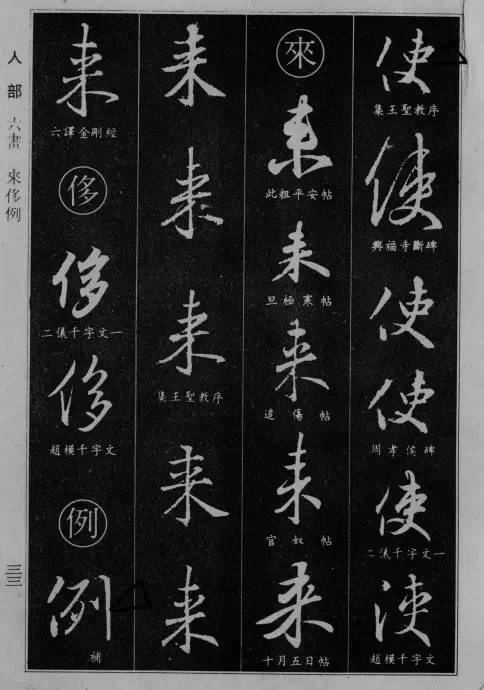 人部 六畫 來侈例
三三
使
集王聖教序
使
興福寺斷碑
使
使
周孝侯碑
使
二儀千字文一
使
趙模千字文
來
来
此粗平安帖
来
旦極寒帖
来
追傷帖
来
官奴帖
来
十月五日帖
来
来
来
集王聖教序
来
来
来
六譯金剛經
侈
侈
二儀千字文一
侈
趙模千字文
例
例
補